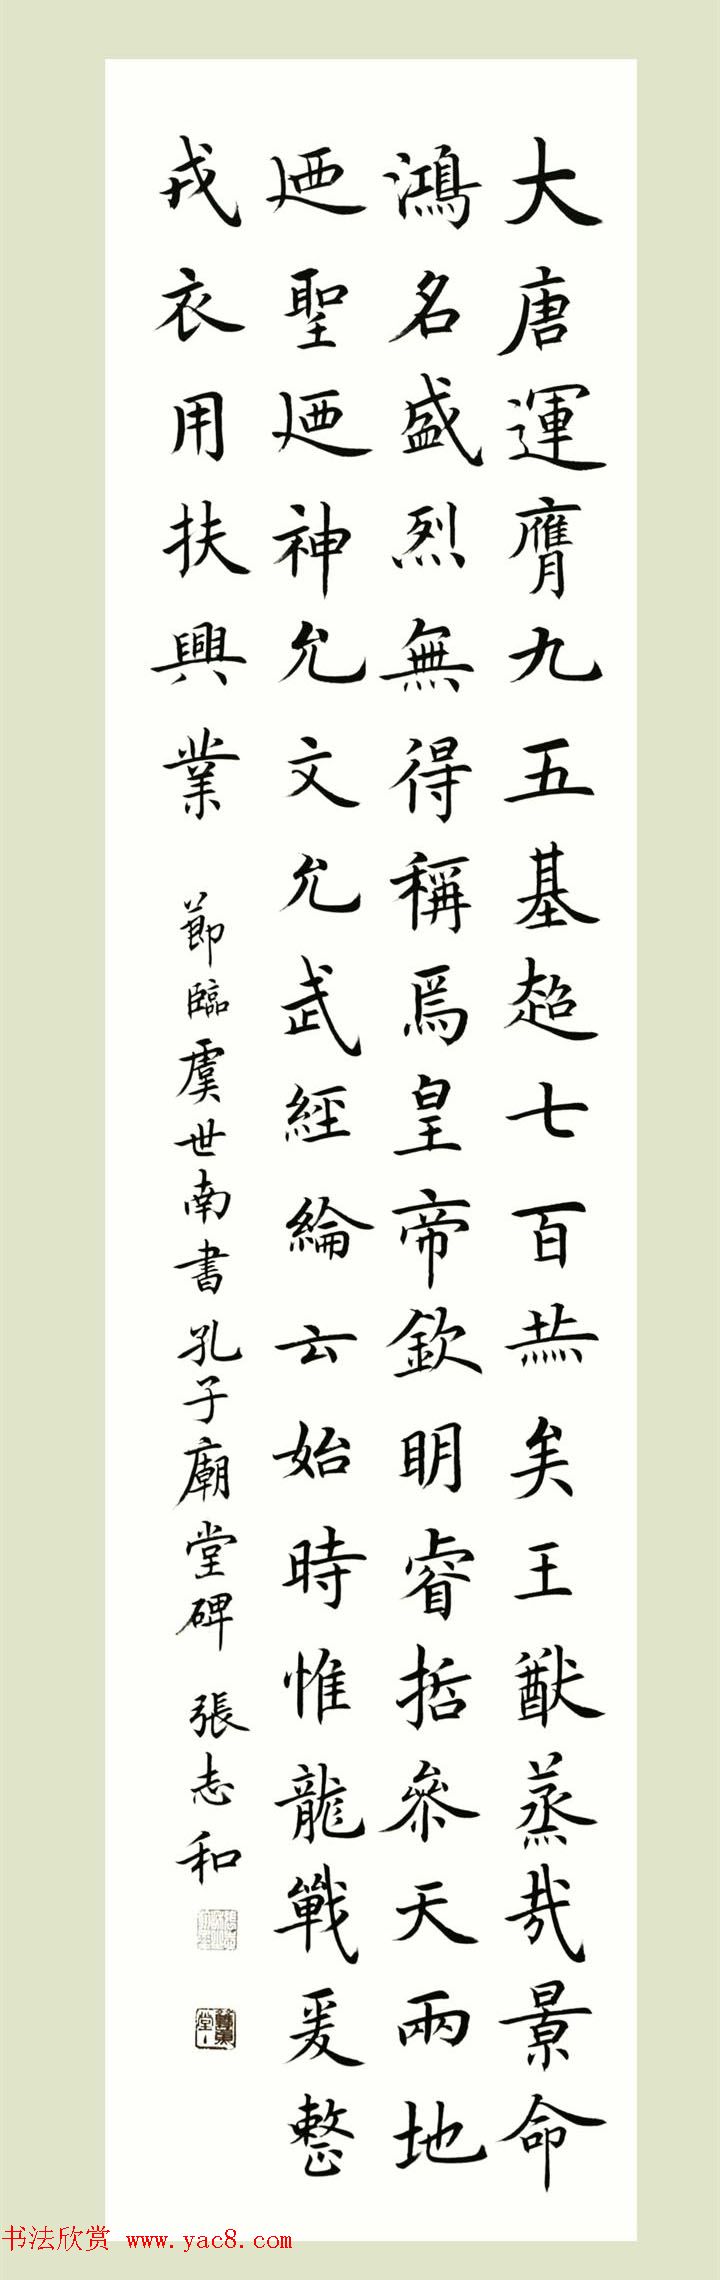 大唐運膺九五基超七百赫矣王猷蒸哉景命
鴻名盛烈無得稱焉皇帝欽明睿哲參天兩地
迺聖迺神允文允武經綸云始時惟龍戰爰整
戎衣用扶興業
節臨虞世南書孔子廟堂碑 張志和
书法欣赏 www.yac8.com